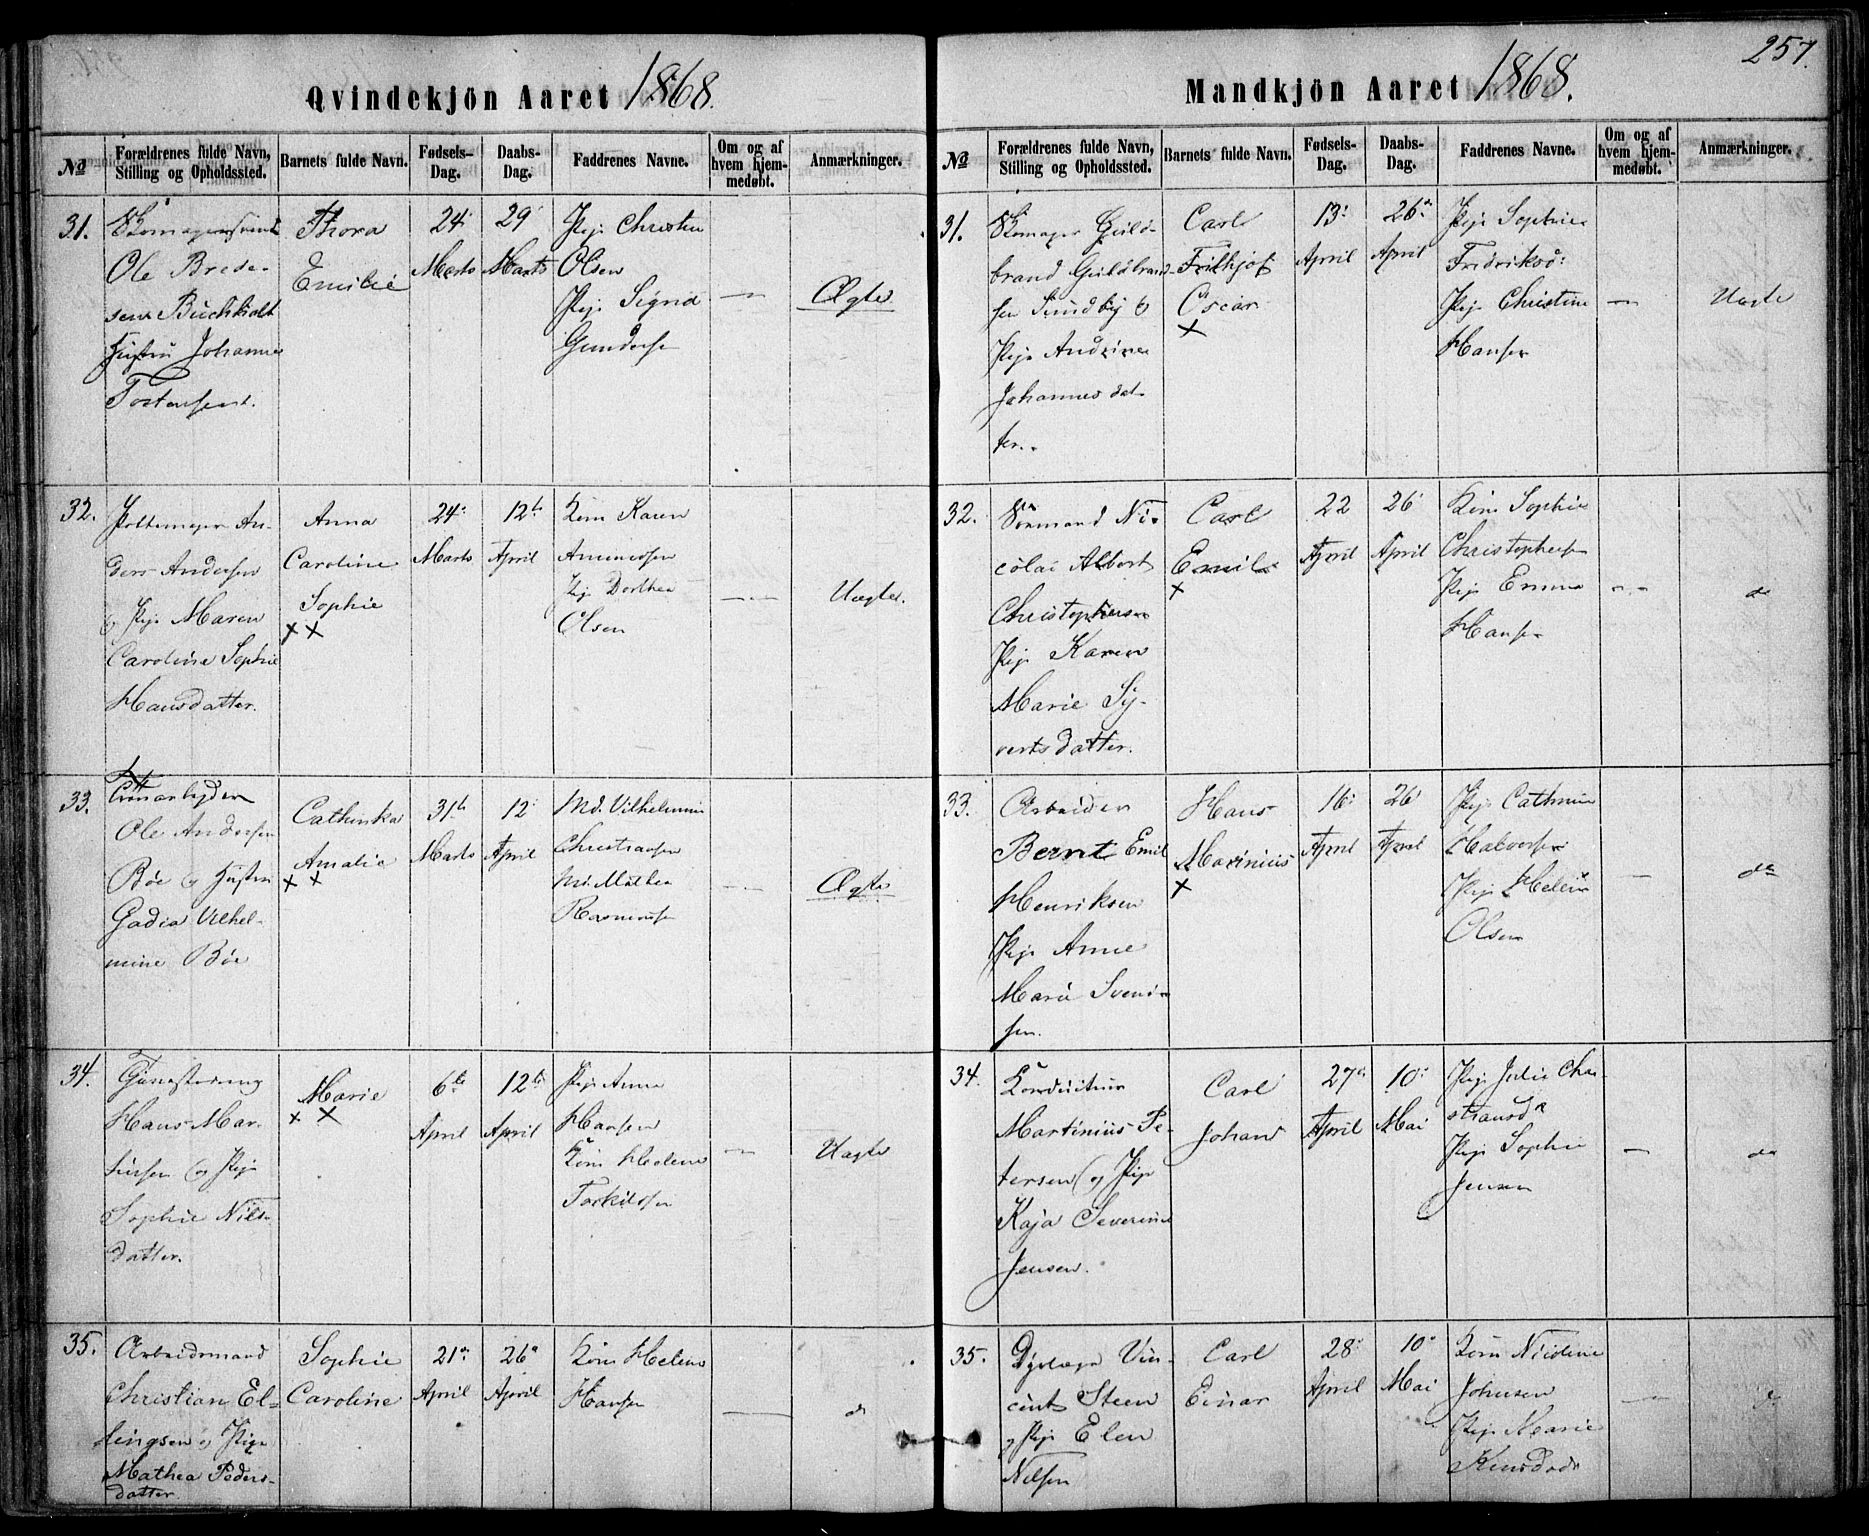 Qvindekjön Aaret 1868.
No
Forældrenes fulde Navn,
Stilling og Opholdssted.
Barnets fulde Navn.
Fødsels-
Dag.
Daabs-
Dag.
Faddrenes Navne.
Om og af
hvem hjem-
medøbt.
Anmærkninger.
31.
Skomagersvend
Ole Brede-
sen Buchholdt
Hustru Johanne
Tostensen.
Thora
Emilie
24
Marts
29
Marts
Pige Christine
Olsen
Pige Sigrid
Gundersen
Ægte
32.
Pottemager An-
ders Andersen
og Pige Maren
Caroline Sophie
Hansdatter.
Anna
Caroline
Sophie
××
24
Marts
12te
April
Kone Karen
Pige Dorthea
Olsen
Uægte.
33.
Ole Andersen
Bøe og Hustru
Vilhel-
mine Bøe
Cathinka
Amalie
××
31te
Marts
12
April
Md. Vilhelmine
Christiansen
Md. Mathea
Rasmussen
Ægte
34.
Hans Mar-
tinsen og Pige
Sophie Nils-
datter.
Marie
××
6te
April
12te
April
Pige Anna
Hansen
Kone Helene
Torkilsen
Uægte
35.
Arbeidsmand
Christian El-
lingsen og Pige
Mathea Peders-
datter.
Sophie
Caroline
21de
April
26de
April
Kone Helene
Hansen
do
257.
Mandkjön Aaret 1868.
No
Forældrenes fulde Navn,
Stilling og Opholdssted.
Barnets fulde Navn.
Fødsels-
Dag.
Daabs-
Dag.
Faddrenes Navne.
Om og af
hvem hjem-
medøbt.
Anmærkninger.
31.
Skomager Guld-
brand Guldbrand-
sen Sundby og
Pige Andrine
Johannesdat-
ter.
Carl
Frithjof
Oscar
×
13
April
26de
April
Pige Sophie
Fredriksd:
Pige Christine
Hansen
Uægte
32.
Sømand Ni-
colai Albert
Christophersen
Pige Karen
Marie Sy-
vertsdatter.
Carl
Emil
×
22
April
26
April
Kone Sophie
Christophersen
Pige Emma
Hansen
do
33.
Arbeider
Bernt Emil
Henriksen
Pige Anne
Marie Svend-
sen.
Hans
Marinius
×
16
April
26
April
Pige Cathrine
Halvorsen
Pige Helene
Olsen
do
34.
Konducteur
Martinius Pe-
tersen og Pige
Kaja Severine
Jensen.
Carl
Johan
27de
April
10
Mai
Pige Julie Chri-
stiansdr
Pige Sophie
Jensen
do
35.
Vin-
cent Steen
og Pige Elen
Nilsen
Carl
Einar
28
April
10
Mai
Kone Nicoline
Johnsen
Pige Marie
Knudsdr
do